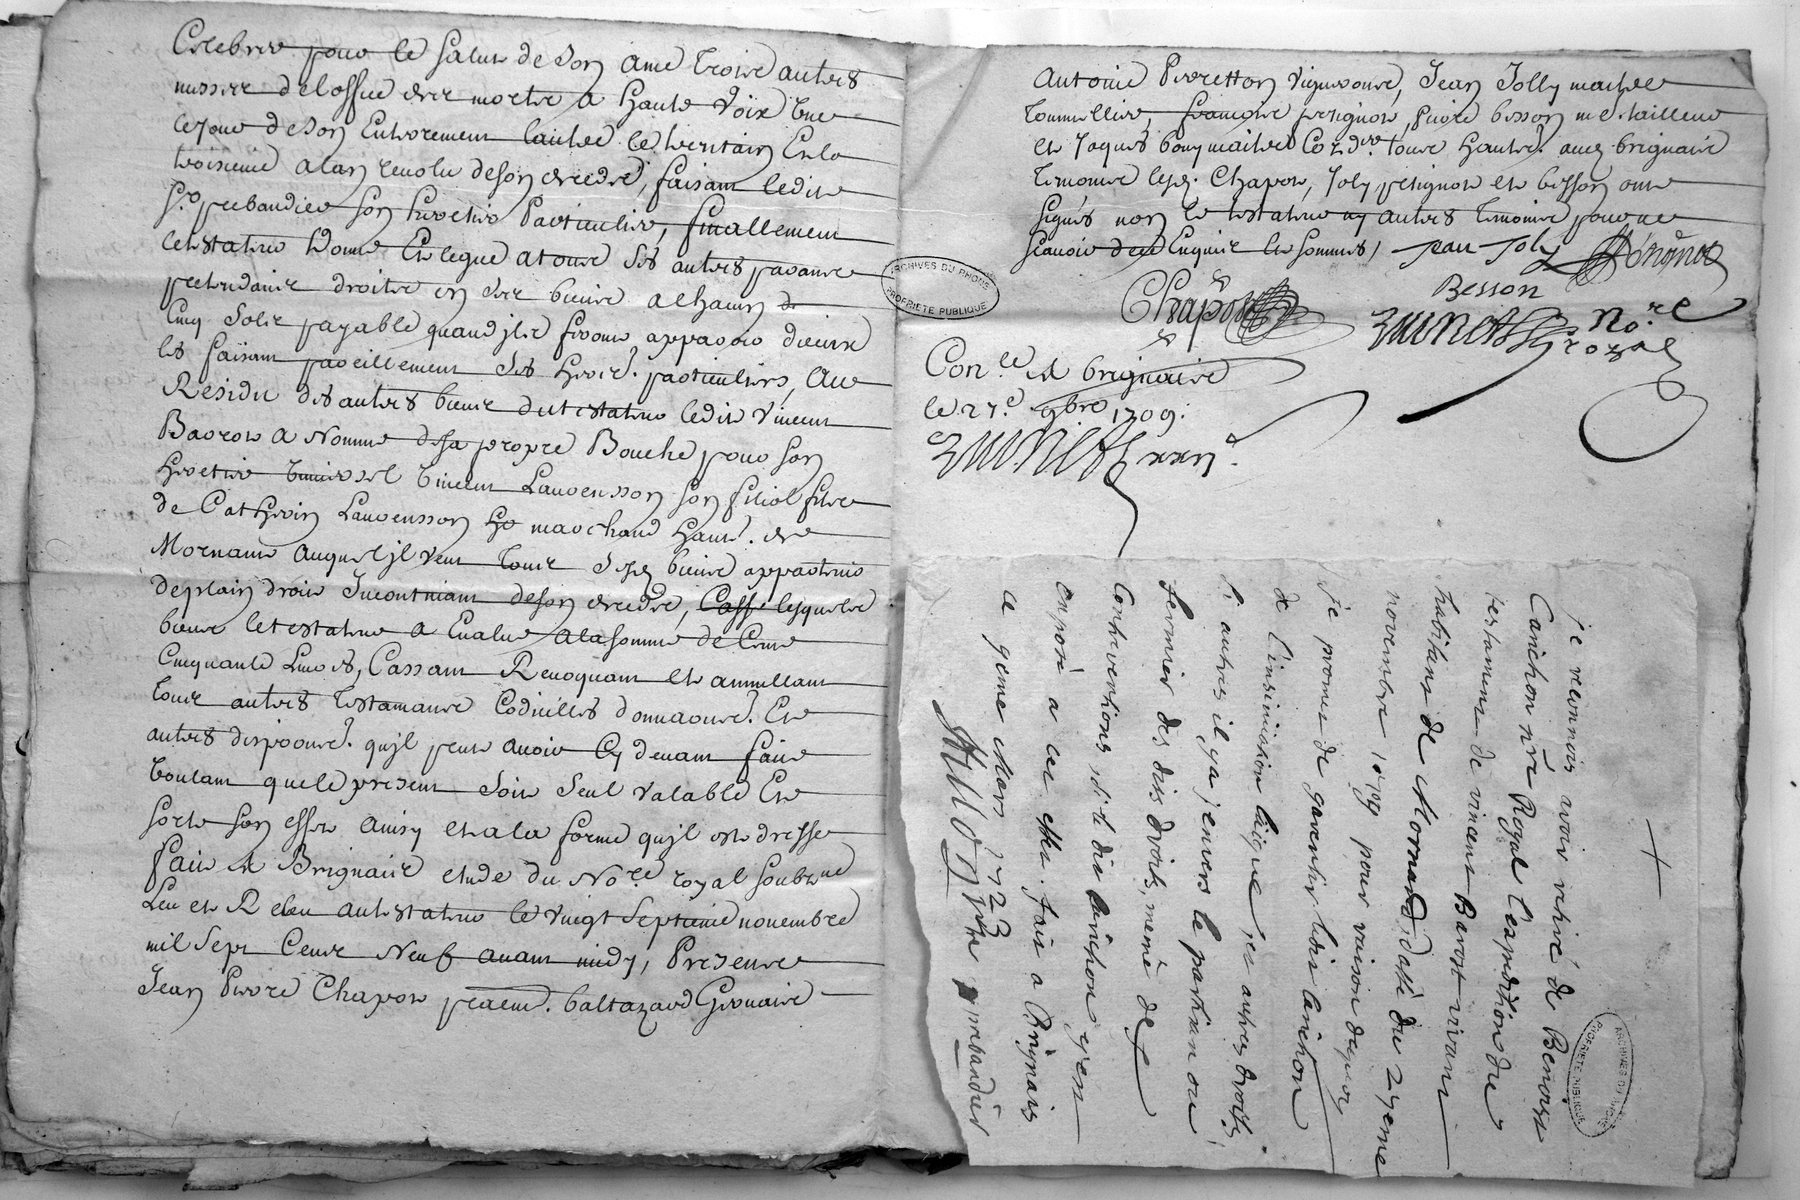 Celebrer pour le salut de son ame trois autres
messes de loffice des mortes a haute voix Lune
le jour de son Enterrement lautre le lendemain Et la
troisieme a lan revolu de son decedz, faisant ledit
Sr. prebandier son heretier particulier, finallement
letestateur donne Et legue a tous ses autres parants
pretendants droits en ses biens a chacun de
Cinq solz payable quand ilz feront apparoir diceux
les faisant pareillement ses heritr. particuliers, Au
Residu des autres biens dutestateur ledit Vincent
Barrot a nomme de sa propre Bouche pour son
heretier universel Vincent Laurensson son filiol filz
de Catherin Laurensson marchand habt. de
Mornant auquel jl veut tous sesd. biens appartenir
deplain droit Incontinant de son decedz, lesquelz
biens letestateur a Evalue a la somme de Cent
Cinquante Livres, Cassant Revoquant et annullant
tous autres testamants Codicilles donnaons. Et
autres disposons. qujl peut avoir Cy devant faits
voulant que le present soit seul valable Et
sorte son effet ainsy et a la forme qujl est dresse
fait A Brignais etude du Nore. royal soubzne
Leu et Releu autestateur le vingt septieme novembre
mil sept Cents Neuf avant midy, Presents
Jean Pierre Chapot pratn. baltazard Gervaise
Antoine Perretton Vigneron, Jean Jolly maitre
tonnellier, francois petignot, pierre besson me. tailleur
et Jaques bony maitre Cordr. tous habts. aud. brignais
temoins lesd. Chapot, Joly petignot et besson ont
signés non le testateur ny autres temoins pour ne
scavoir de ce Enquis et sommes / Jean Joly
Chapot
Besson
Nore.
royal
Conle. A brignais
le 27.e 9bre 1709.
+
je reconnois avoir retiré de Benoist
Canchon nre Royal l'expedition du
testament de vincent Barost vivant
habitant de Mornand, datté du 27eme
novembre 1709 pour raison dequoy
je promet de garentir ledit Canchon
de l'insinuation laïque, et autres droits
s. autres il y a, envers le partisan ou
fermier des dits droits, meme de
Contreventions si le dit Canchon y est
exposé a cet effet. fait a Brignais
ce 9eme Mars 1723
prebandier
ARCHIVES DU RHONE
PROPRIETE PUBLIQUE
ARCHIVES DU RHONE
PROPRIETE PUBLIQUE